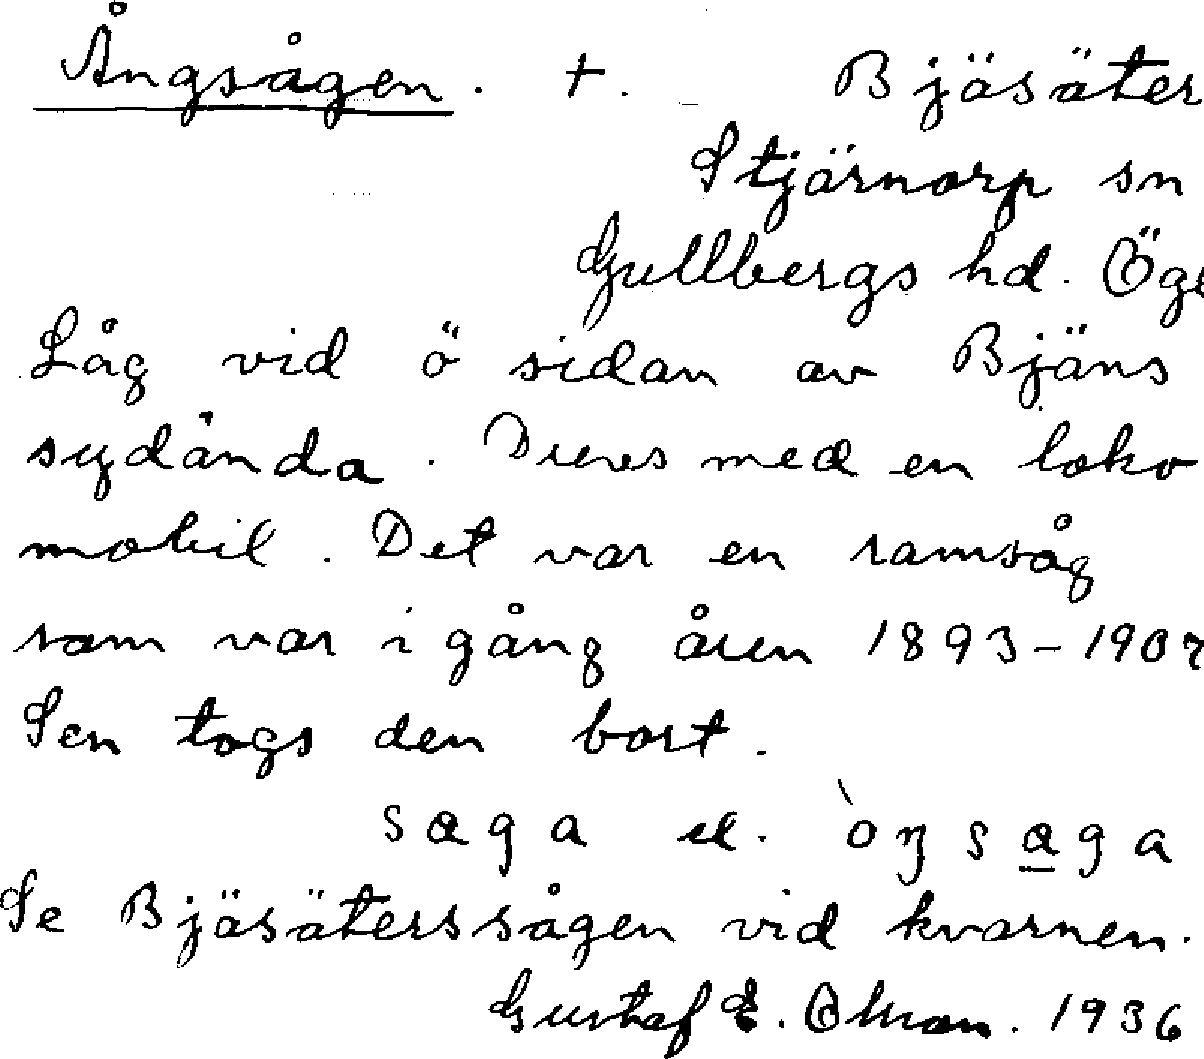 Ångsågen. +. Bjäsäter
Stjärnorp sn
Gullbergs hd. Ög
Låg vid ö sidan av Bjäns
sydända. Drevs med en loko
mobil. Det var en ramsåg
som var i gång åren 1893-1907
Sen togs den bort.
saga el. òŋsaga
Se Bjäsäterssågen vid kvarnen.
Gustaf E. 1936